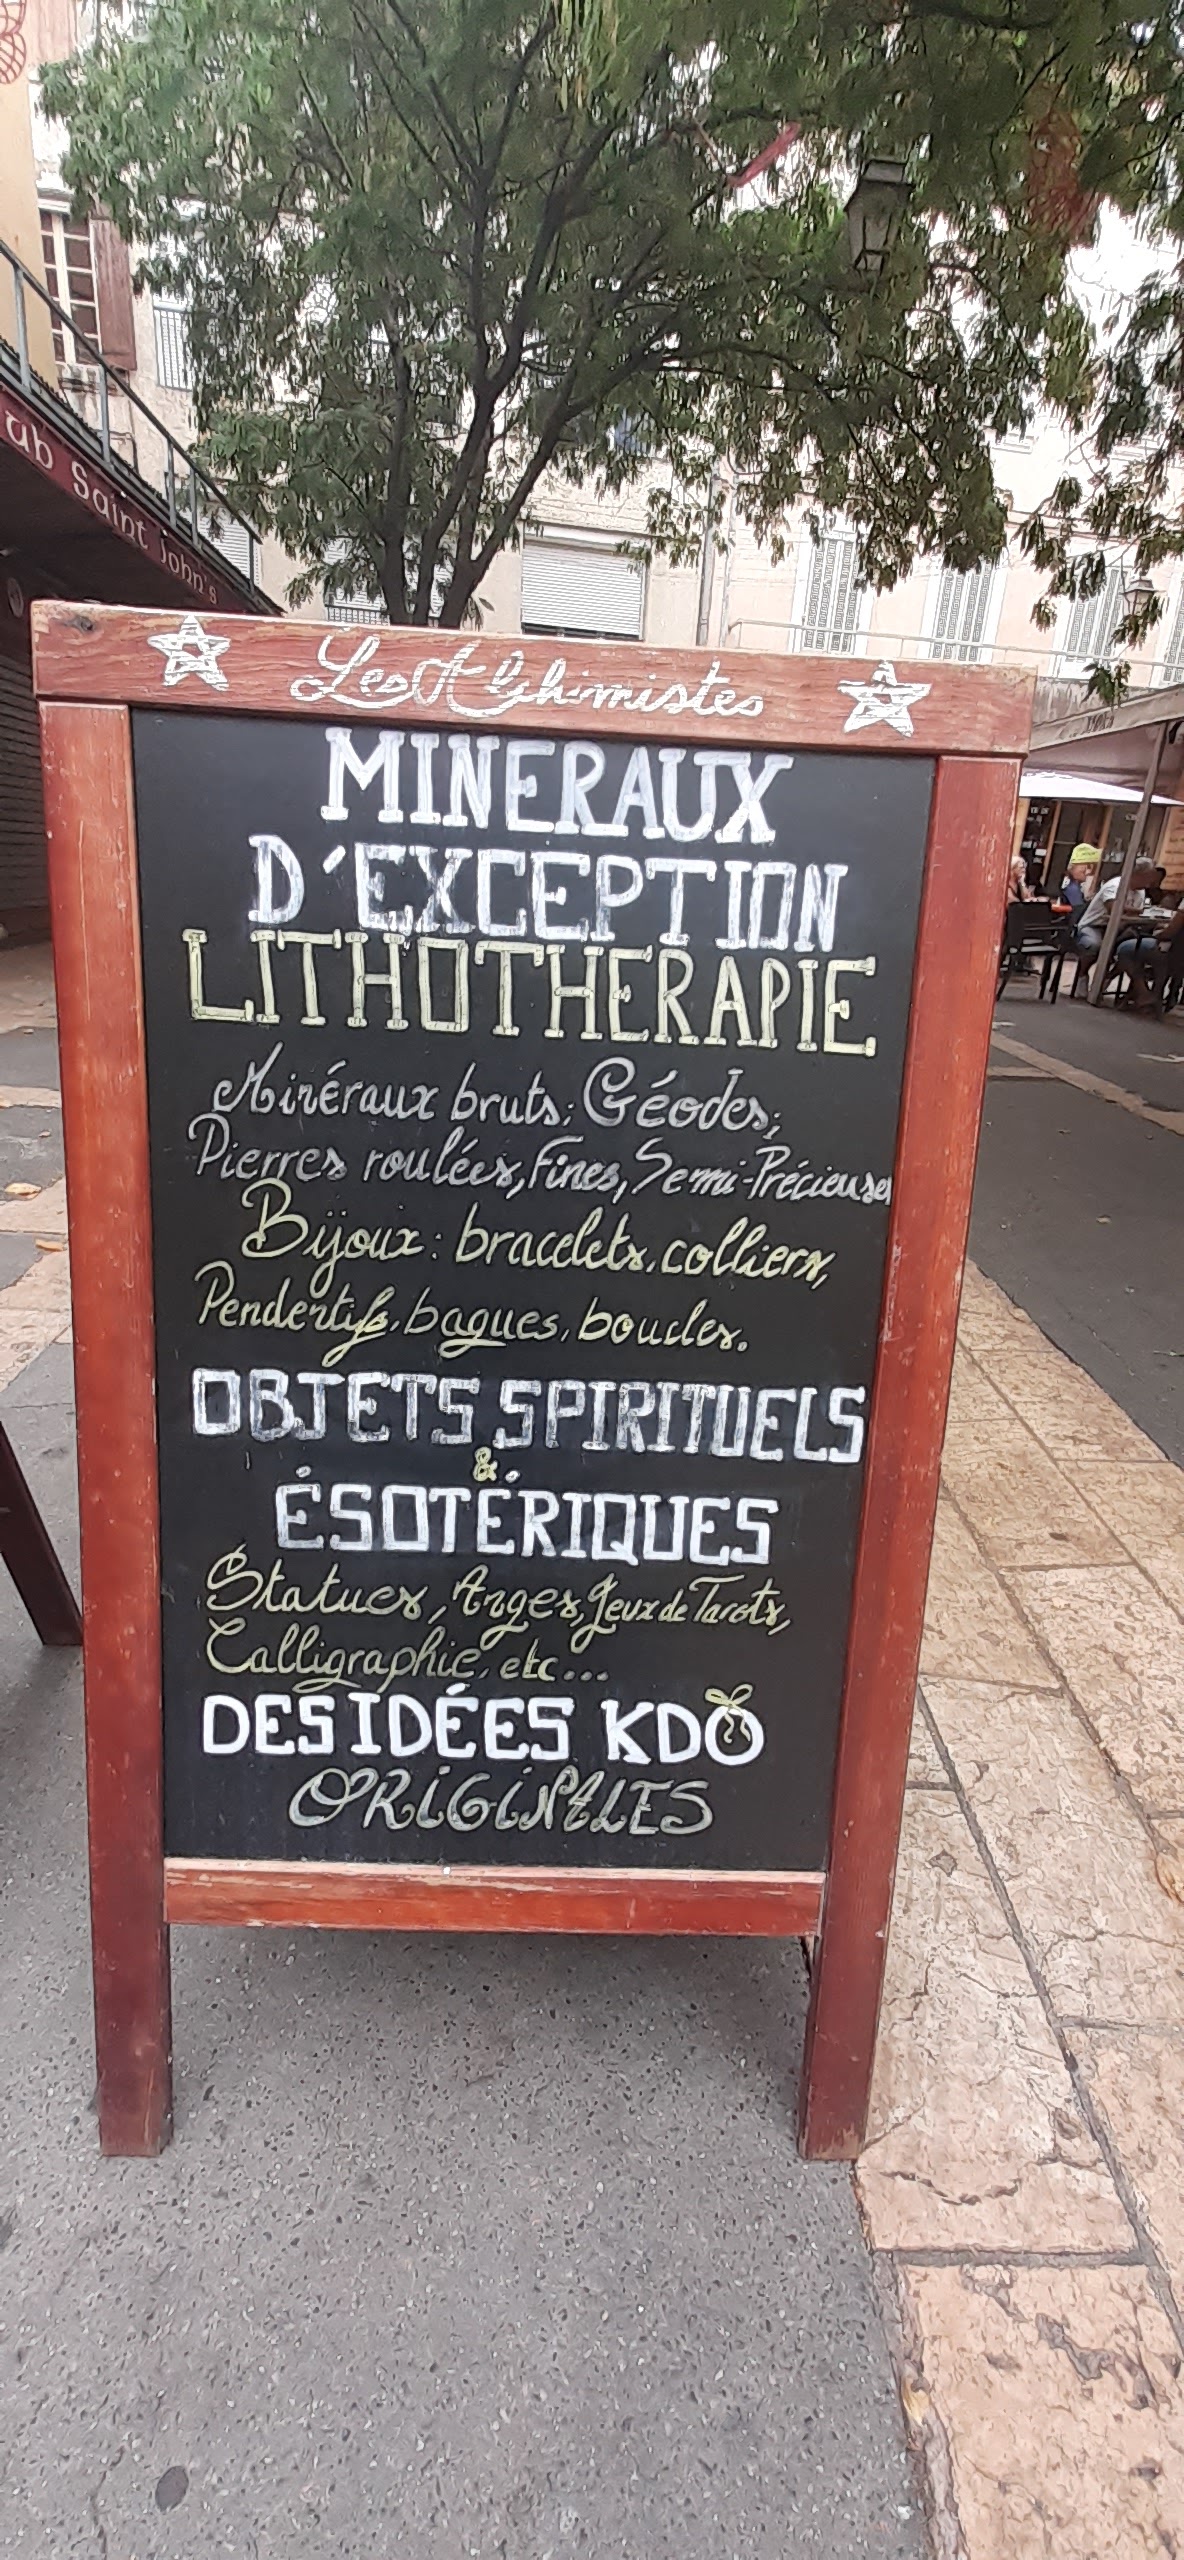 ub Saint John's
Les Alchimistes
MINERAUX
D'EXCEPTION
LITHOTHERAPIE
Minéraux bruts, Géodes,
Pierres roulées, Fines, Semi-Précieuses
Bijoux : bracelets, colliers,
Pendentifs, bagues, boucles.
OBJETS SPIRITUELS
&
ÉSOTÉRIQUES
Statues, Anges, Jeux de Tarots,
Calligraphie, etc...
DES IDÉES KDO
ORIGINALES